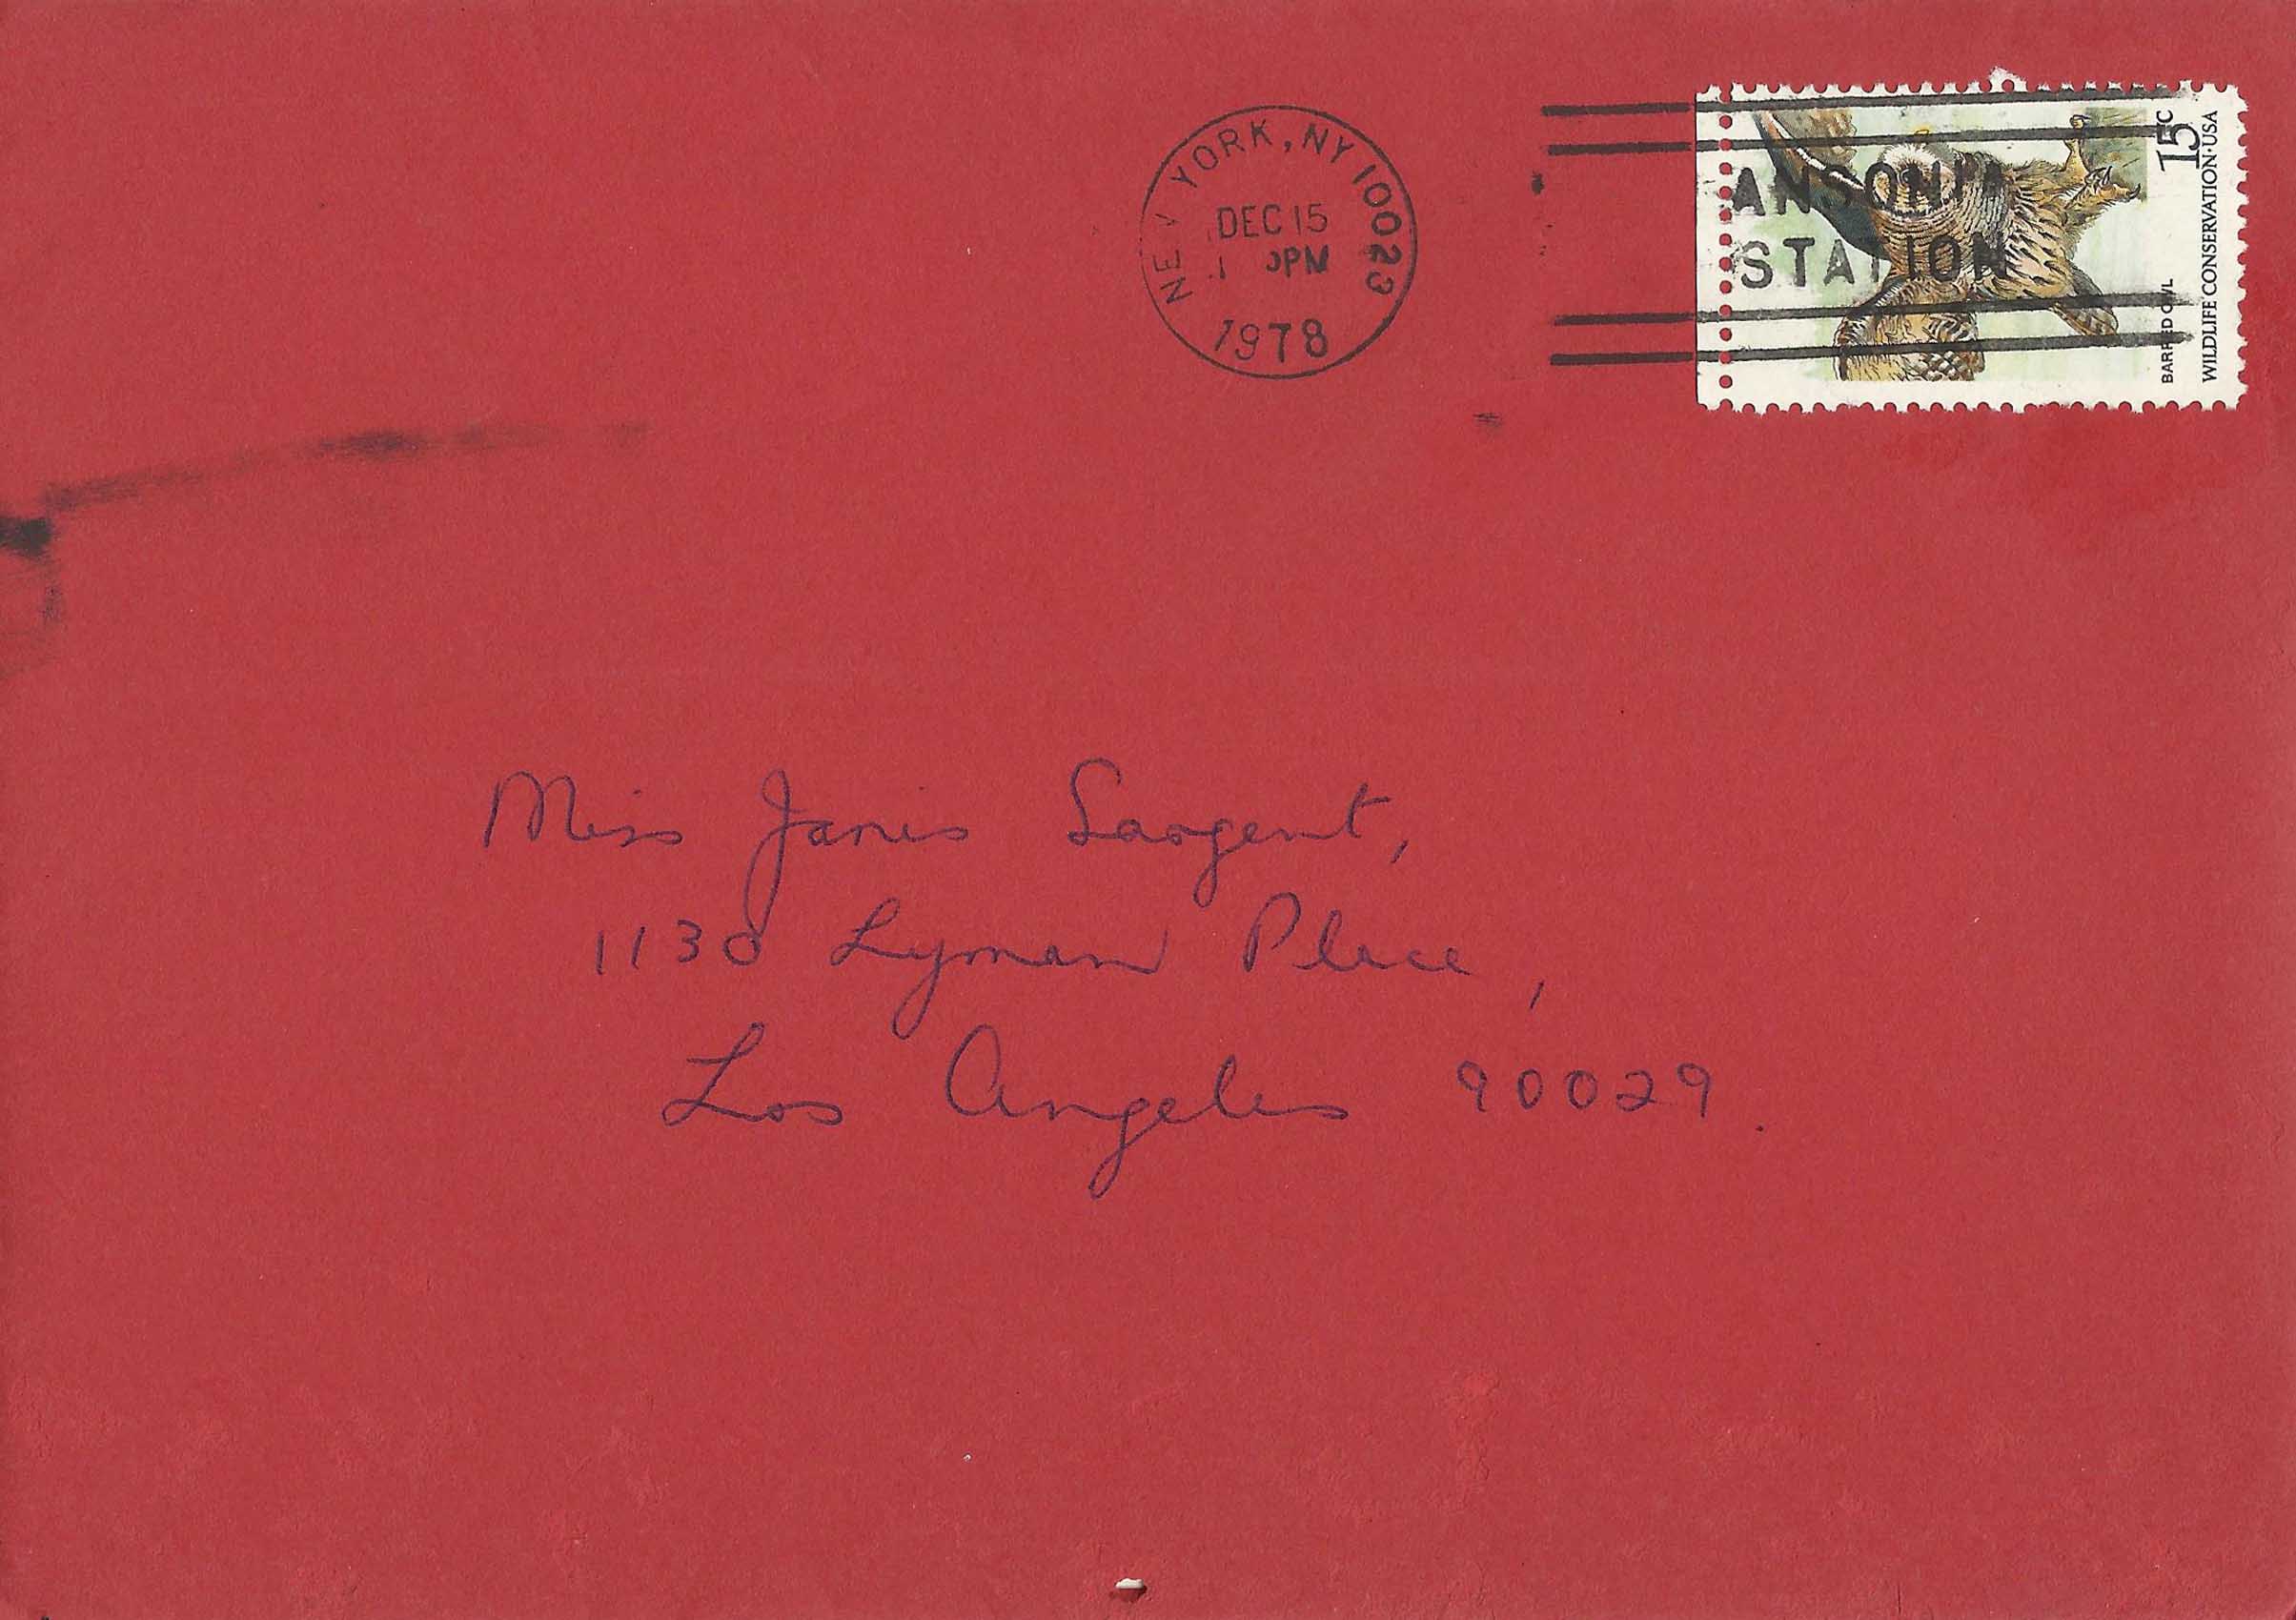 NEW YORK, NY 10023
DEC 15
PM
1978
ANSONIA
STATION
15c
BARRED OWL
WILDLIFE CONSERVATION·USA
Miss Janis Sargent,
1130 Lyman Place,
Los Angeles 90029.